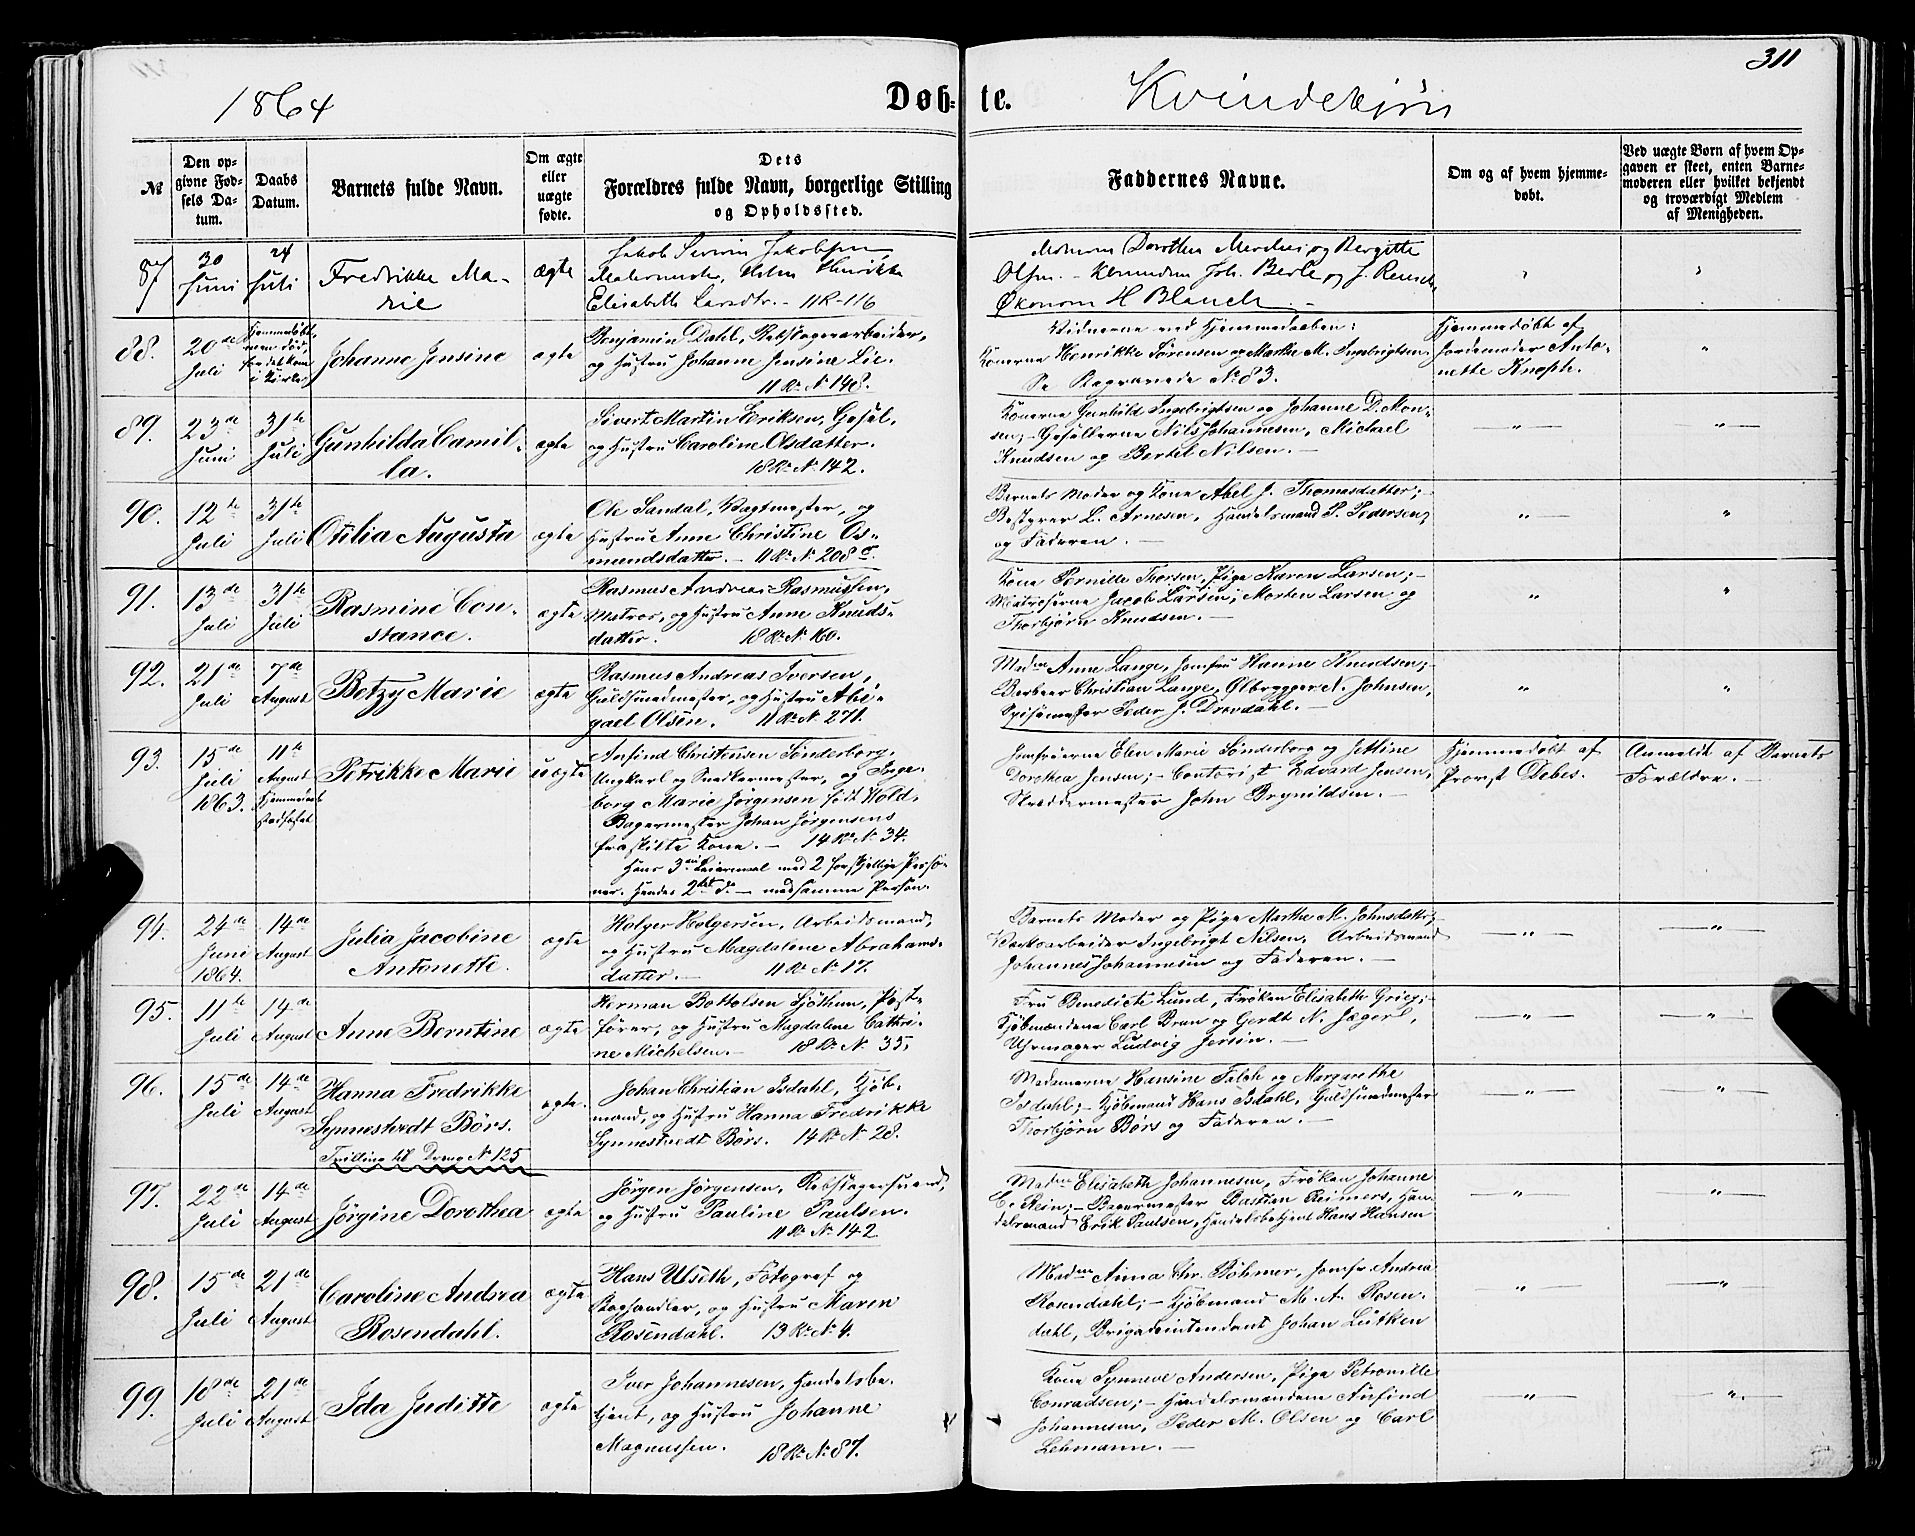 311
1864 Døb- te. Kvindekjøn
№
Den op-
givne Fød-
sels Da-
tum.
Daabs
Datum.
Barnets fulde Navn.
Om ægte
eller
uægte
fødte.
Dets
Forældres fulde Navn, borgerlige Stilling
og Opholdssted.
Faddernes Navne.
Om og af hvem hjemme-
døbt.
Ved uægte Børn af hvem Op-
gaven er skeet, enten Barne-
moderen eller hvilket bekjendt
og troværdigt Medlem
af Menigheden.
87
30
Juni
24
Juli
Fredrikke Ma-
rie
ægte
Jakob Severin Jakobsen
Malermester, Henrikke
Elisabeth Larsdtr. - 11 R - 116
Dorothea og Bergitte
Olsen. - Joh. Berle og J.
Økonom H Blauch. -
"
"
88.
20de
Juli
Hjemmedøbt,
men død,
før det kom
i Kirke
Johanne Jensine
ægte
Benjamin Dahl, Rebslagerarbeider,
og Hustru Johanne Jensine Lie.
11 R. N. 148.
Vidnerne ved Hjemmedaaben:
Konerne Henrikke Sørensen og Marthe M. Ingebrigtsen.
Se Begravede No 83.
Hjemmedøbt af
Jordemoder Anto-
nette Knoph.
"
89.
23de
Juni
31te
Juli
Gunhilda Camil-
la.
ægte
Sivert Martin Eriksen, Gesel,
og Hustru Caroline Olsdatter.
18 R. N. 142.
Konerne Gunhild Ingebrigtsen og Johanne D. Mon-
sen; - Gesellerne Nils Johannesen, Michael
Knudsen og Bertel Nilsen. -
"
"
90.
12te
Juli
31te
Juli
Otilia Augusta
ægte
Ole Sandal, Vagtmester, og
Hustru Anne Christine Os-
mundsdatter. - 11 R. N. 208 c.
Barnets Moder og Kone Abel J. Thomasdatter; -
Bestyrer L. Arnesen, Handelsmand P. Pedersen,
og Faderen. -
"
"
91.
13de
Juli
31te
Juli
Rasmine Con-
stance.
ægte
Rasmus Andreas Rasmussen,
Matros, og Hustru Anne Knuds-
datter. 18 R. N. 160.
Kone Pernille Thorsen, Pige Karen Larsen; -
Matroserne Jacob Larsen, Morten Larsen og
Thorbjørn Knudsen. -
"
"
92.
21de
Juli
7de
August
Betzy Marie
ægte
Rasmus Andreas Iversen,
Guldsmedmester, og Hustru Abi-
gael Olsen. 11 R. N. 271.
Madm Anne Lange, Jomfru Hanne Knudsen; -
Barbeer Christian Lange, Ølbrygger N. Johnsen,
Spisemester Peder J. Drevdahl. -
"
"
93.
15de
Juli
1863.
11te
August
Hjemmedaab
stadfæstet
Petrikke Marie
uægte
Anfind Christensen Sønderborg,
Ungkarl og Snedkermester, og Inge-
borg Marie Jørgensen født Wold,
Bagermester Johan Jørgensens
fraskilte Kone. - 14 R. N. 34.
Hans 3die Leiermaal med 2 forskjellige Perso-
ner. Hendes 2det do - med samme Person.
Jomfruerne Elen Marie Sønderborg og Jettine
Dorothea Jensen; - Contorist Edvard Jensen,
Skræddermester John Brynildsen. -
Hjemmedøbt af
Provst Debes.
Anmeldt af Barnets
Forældre. -
94.
24de
Juni
1864.
14de
August
Julia Jacobine
Antonette.
ægte
Holger Holgersen, Arbeidsmand,
og Hustru Magdalene Abrahams-
datter. - 11 R. N. 17.
Barnets Moder og Pige Marthe M. Johnsdatter, -
Værksarbeider Ingebrigt Nilsen, Arbeidsmand
Johannes Johannesen og Faderen. -
"
"
95.
11te
Juli
14de
August
Anne Berntine
ægte
Herman Bottolsen Sjöthun, Post-
fører, og Hustru Magdalene Cathri-
ne Michelsen. - 18 R. N. 35.
Fru Benedicte Lund, Frøken Elisabeth Grieg; -
Kjøbmændene Carl Brun og Gerdt N. Jæger,
Uhrmager Ludvig Jersin. -
"
"
96.
15de
Juli
14de
August
Hanna Fredrikke
Synnestvedt Børs.
Tvilling til Dreng No 125
ægte.
Johan Christian Isdahl, Kjøb-
mand, og Hustru Hanna Fredrikke
Synnestvedt Børs. 14 R. N. 28.
Madamerne Hansine Falch og Margarethe
Isdahl; - Kjøbmand Hans Isdahl, Guldsmedmester
Thorbjørn Børs og Faderen. -
"
"
97.
22de
Juli
14de
August
Jørgine Dorothea
ægte
Jørgen Jørgensen, Rebslagersvend,
og Hustru Pauline Paulsen.
11 R. N. 142
Madm Elisabeth Johannesen, Frøken Johanne
C. Rein; - Bagermester Bastian Reimers, Han-
delsmand Erik Paulsen, Handelsbetjent Hans Hansen
"
"
98.
15de
Juli
21de
August
Caroline Andrea
Rosendahl.
ægte
Hans Ulseth, Fotograf og
Boghandler, og Hustru Maren
Rosendahl. 13 R. N. 4.
Madm Anna Chr. Böhmer, Jomfr. Andrea
Rosendahl; - Kjøbmand M. A. Rosen-
dahl, Brigadeintendant Johan Lütken
"
"
99.
18de
Juli
21de
August
Ida Juditte
ægte
Iver Johannesen, Handelsbe-
tjent, og Hustru Johanne
Magnussen. 18 R. N. 87.
Kone Synneve Andersen, Pige Petronille
Conradsen; - Handelsmændene Anfind
Johannesen, Peder M. Olsen og Carl
Lehmann. -
"
"